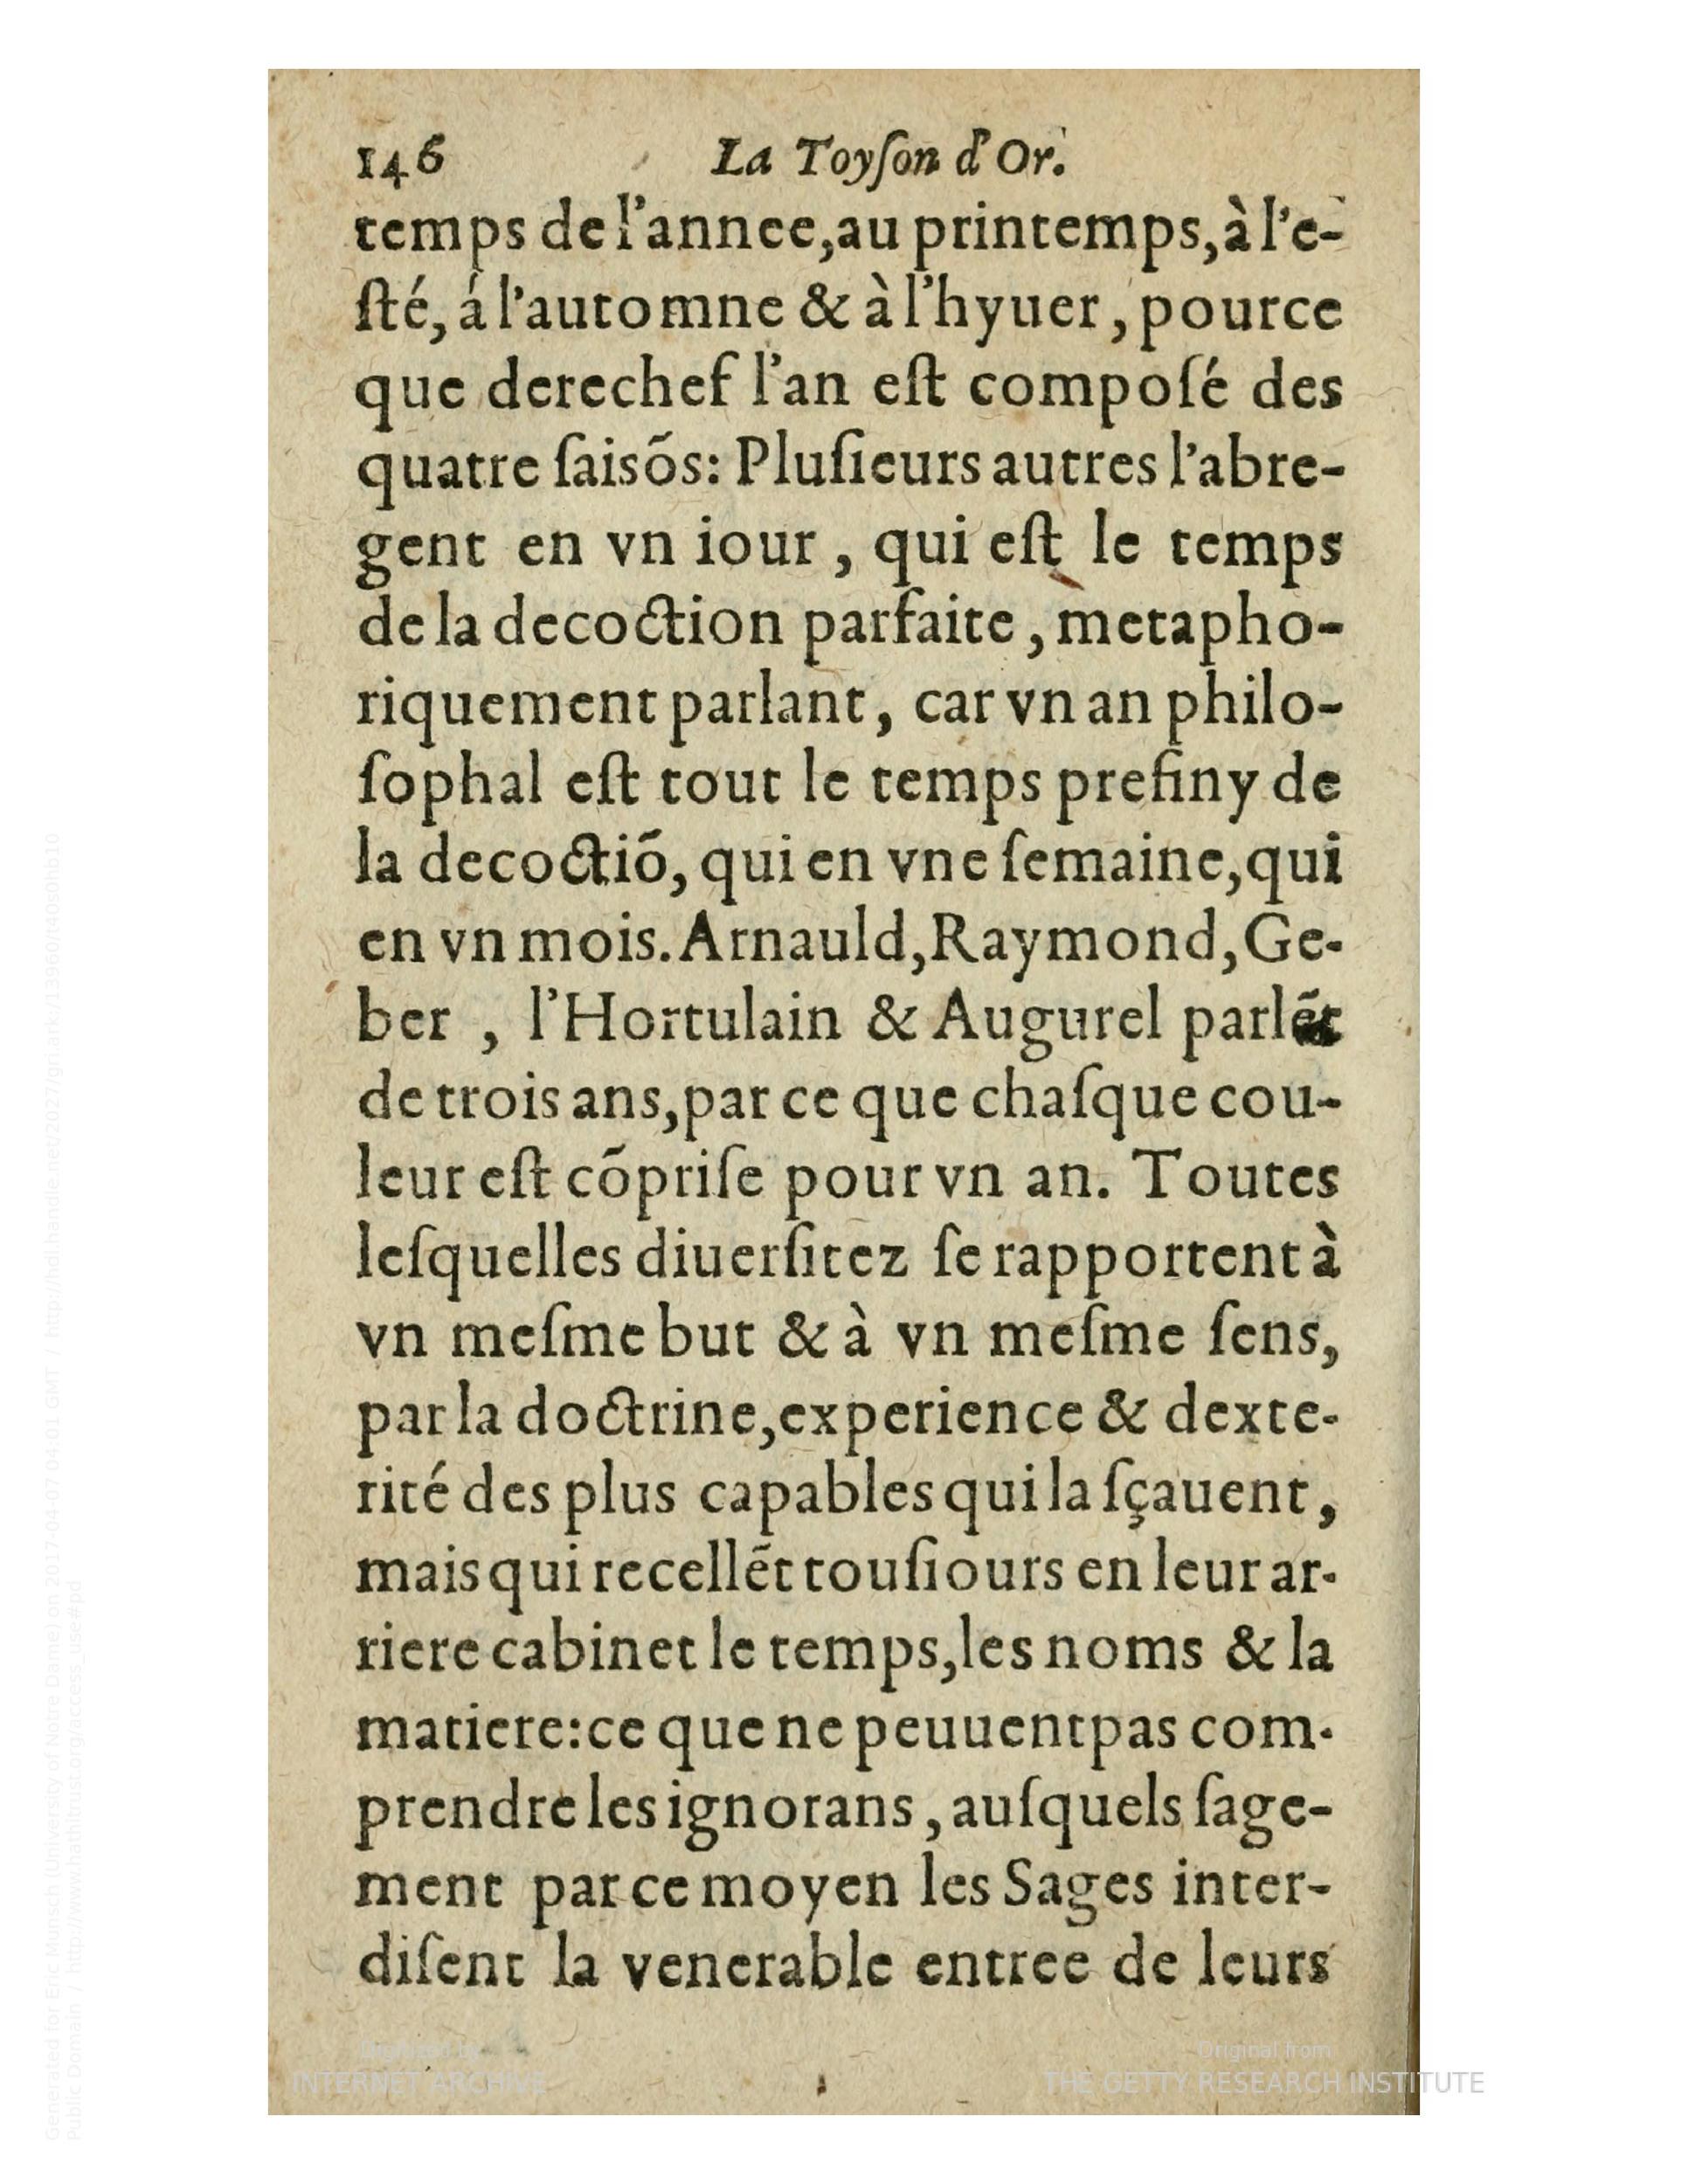 146 La Toyſon d'Or.
temps de l'annee, au printemps, à l'e-
ſté, á l'automne & à l'hyuer, pource
que derechef l'an eſt compoſé des
quatre ſaisõs: Pluſieurs autres l'abre-
gent en vn iour, qui eſt le temps
de la decoction parfaite, metapho-
riquement parlant, car vn an philo-
ſophal eſt tout le temps prefiny de
la decoctiõ, qui en vne ſemaine, qui
en vn mois. Arnauld, Raymond, Ge-
ber, l'Hortulain & Augurel parlẽt
de trois ans, par ce que chaſque cou-
leur eſt cõpriſe pour vn an. Toutes
leſquelles diuerſitez ſe rapportent à
vn meſme but & à vn meſme ſens,
par la doctrine, experience & dexte-
rité des plus capables qui la ſçauent,
mais qui recellẽt touſiours en leur ar-
riere cabinet le temps, les noms & la
matiere: ce que ne peuuent pas com-
prendre les ignorans, auſquels ſage-
ment par ce moyen les Sages inter-
diſent la venerable entree de leurs
Digitized by
INTERNET ARCHIVE
Original from
THE GETTY RESEARCH INSTITUTE
Generated for Eric Munsch (University of Notre Dame) on 2017-04-07 04:01 GMT / http://hdl.handle.net/2027/gri.ark:/13960/t40s0hb10
Public Domain / http://www.hathitrust.org/access_use#pd